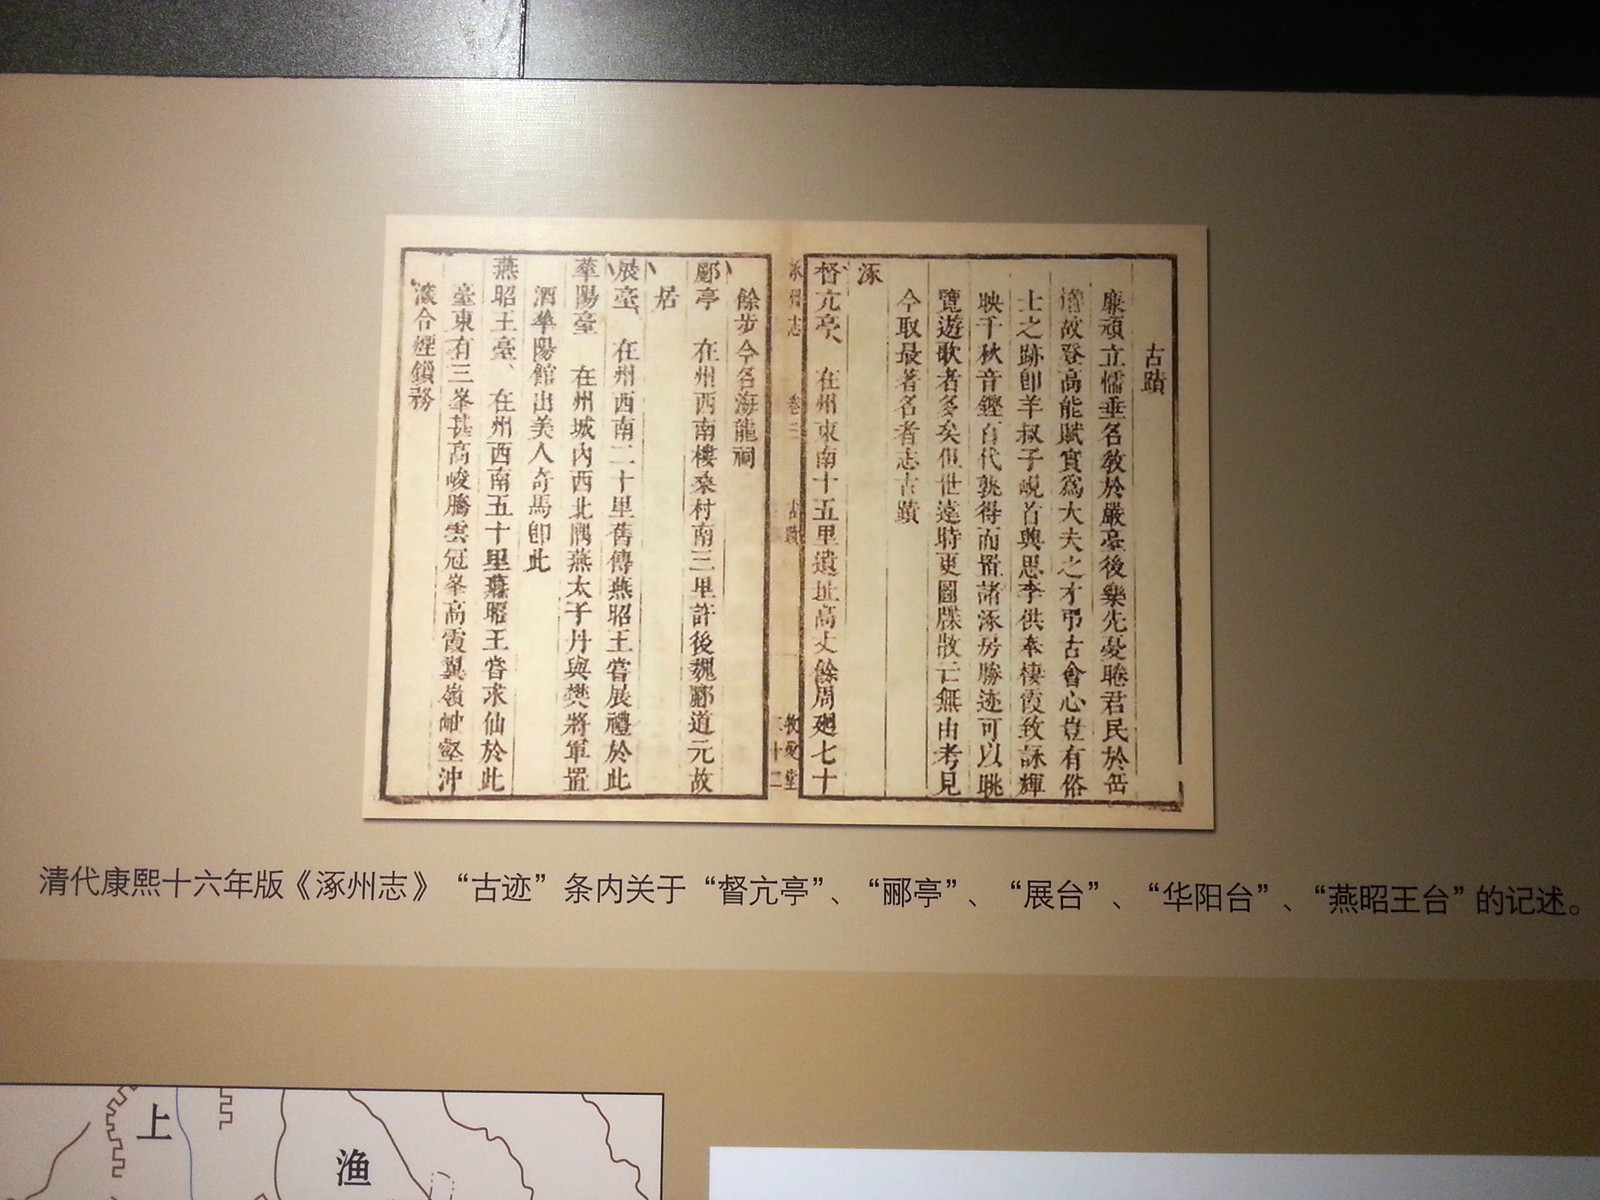 古蹟
廉頑立懦垂名教於嚴臺後樂先憂睠君民於岳
故登高能賦實為大夫之才弔古會心豈有俗
士之跡即羊叔子峴首興思李供奉棲霞致詠輝
映千秋音鏗百代孰得而置諸涿房勝迹可以眺
覽遊歌者多矣但世遠時更圖牒散亡無由考見
今取最著名者志古蹟
涿
督亢亭、在州東南十五里遺址高丈餘周廻七十
涿州志 卷 古蹟 二十二
餘步今名海龍祠
酈亭 在州西南樓桑村南三里許後魏酈道元故
居
展臺、在州西南二十里舊傳燕昭王嘗展禮於此
華陽臺 在州城內西北隅燕太子丹與樊將軍置
酒華陽館出美人奇馬即此
燕昭王臺、在州西南五十里燕昭王嘗求仙於此
臺東有三峯甚高峻騰雲冠峯高霞翼嶺岫壑沖
深含煙鎖務
清代康熙十六年版《涿州志》“古迹”条内关于“督亢亭”、“郦亭”、“展台”、“华阳台”、“燕昭王台”的记述。
上
渔